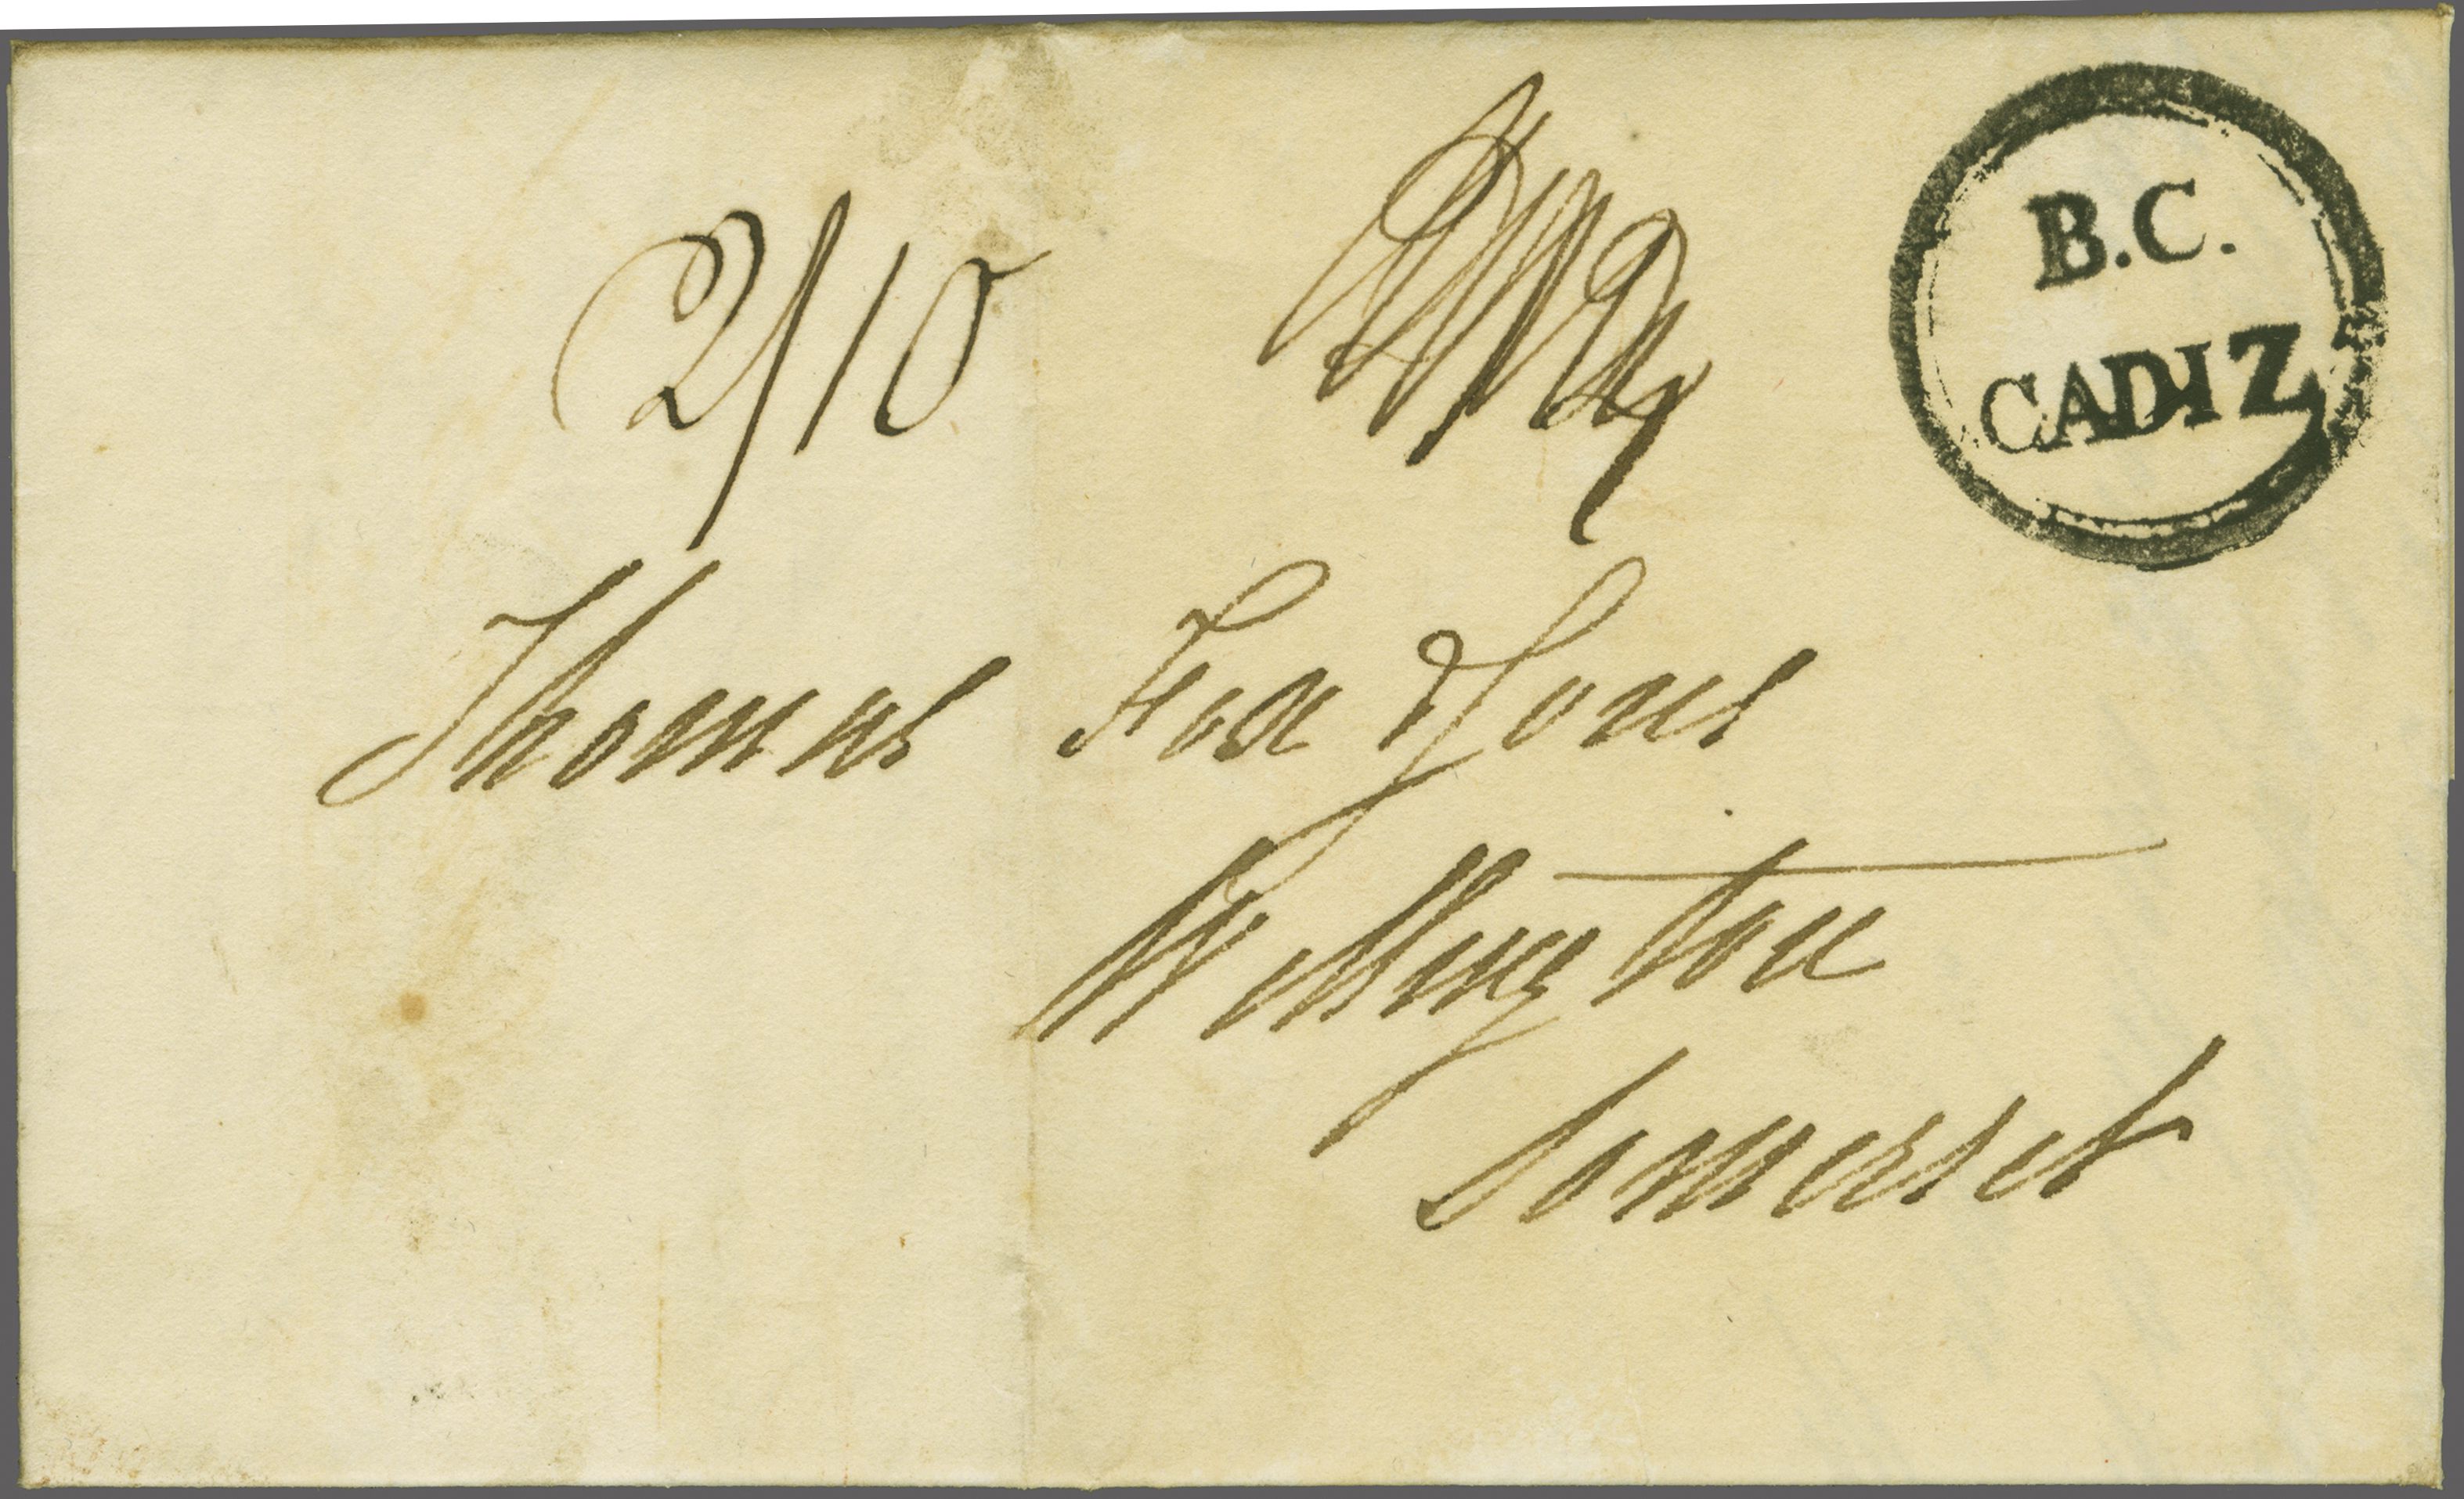 B.C.
CADIZ
2/10
Thomas Fox & Sons
Wellington
Somerset